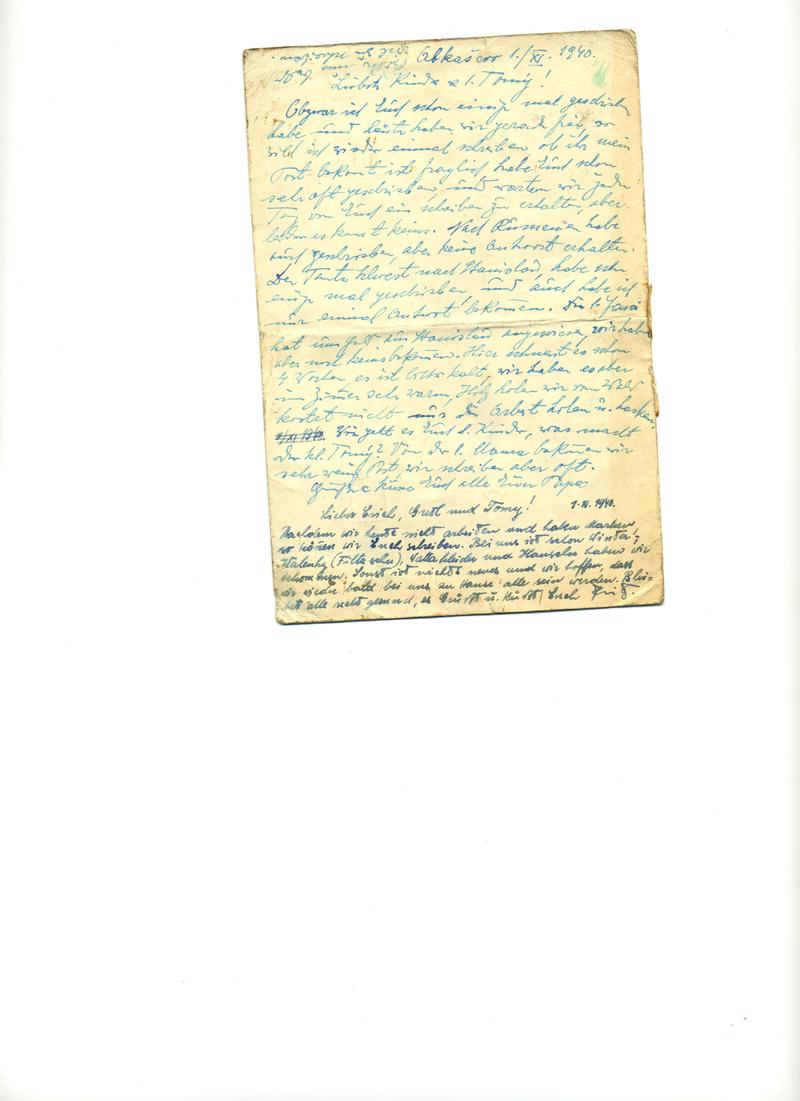 Abkaševo 1./XI. 1940.
Liebste Kinder & l. Tomy!
Obzwar ich Euch schon einige mal geschrieben
habe und heute haben wir gerade frei, so
will ich wieder einmal schreiben ob ihr mein
Post bekomt ist fraglich habe Euch schon
sehr oft geschrieben, und warten wir jeden
Tag von Euch ein schreiben zu erhalten, aber
leider es komt keins. Nach Rumenien habe
auch geschrieben, aber keine Antwort erhalten.
Der Tante nach Stanislau, habe schon
einige mal geschrieben, und auch habe ich
nur einmal Antwort bekomen. Die l.
hat uns Geld aus Stanislau angewiesen, wir haben
aber noch keins bekomen. Hier schneit es schon
Wochen es ist bitter kalt, wir haben es aber
im Zimer sehr warm, Holz holen wir vom Wald
kostet nicht nur die Arbeit holen u. hacken
1/XI 1940. Wie geht es Euch l. Kinder, was macht
der kl. Tomy? Von der l. Mama bekomen wir
sehr wenig Post, wir schreiben aber oft.
Grüße & Küsse Euch alle Euer Papa
Lieber Erich, Gretl und Tomy! 1.XI. 1940.
Nachdem wir heute nicht arbeiten und haben Marken,
so können wir Euch schreiben. Bei uns ist schon Winter!
Walenky (Filzschuhe), Wattakleider und Hauscha haben wir
bekommen. Sonst ist nichts neues und wir hoffen, dass
wir wieder bald bei uns zu Hause alle sein werden. Blei-
bet alle recht gesund, es Grüsst u. Küsst Euch Fritz.